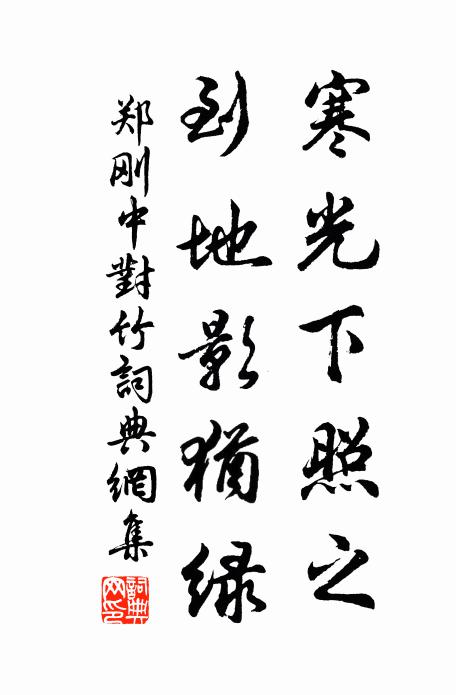 寒光下照之
到地影猶绿
郑刚中對竹詞典網集
詞典网印